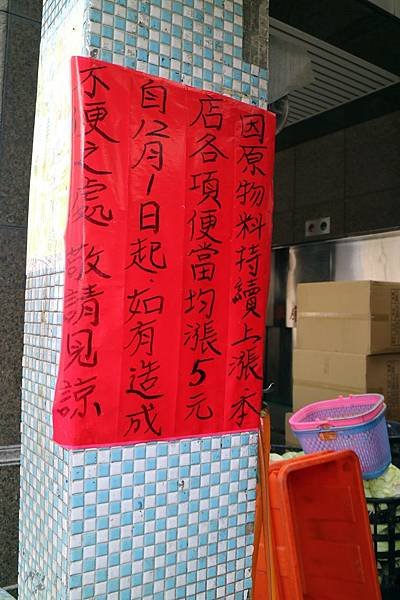 因原物料持續上漲.本
店各項便當均漲5元
自12月1日起.如有造成
不便之處敬請見諒